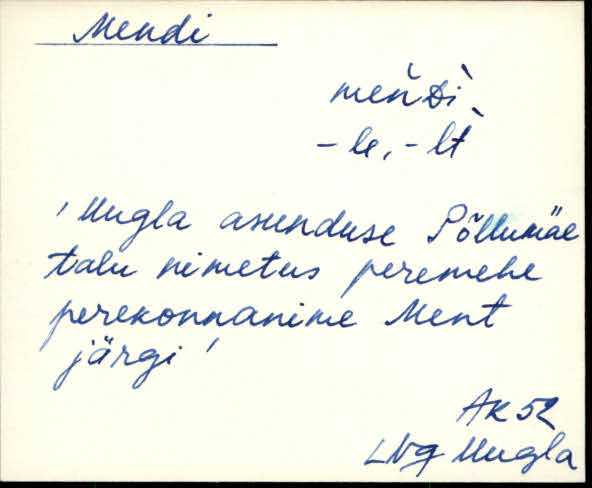 Mendi
meńDì
-le, -lt
'Uugla asunduse Põllumäe
talu nimetus peremehe
perekonnanime Ment
järgi'
AK 52
LNg Uugla